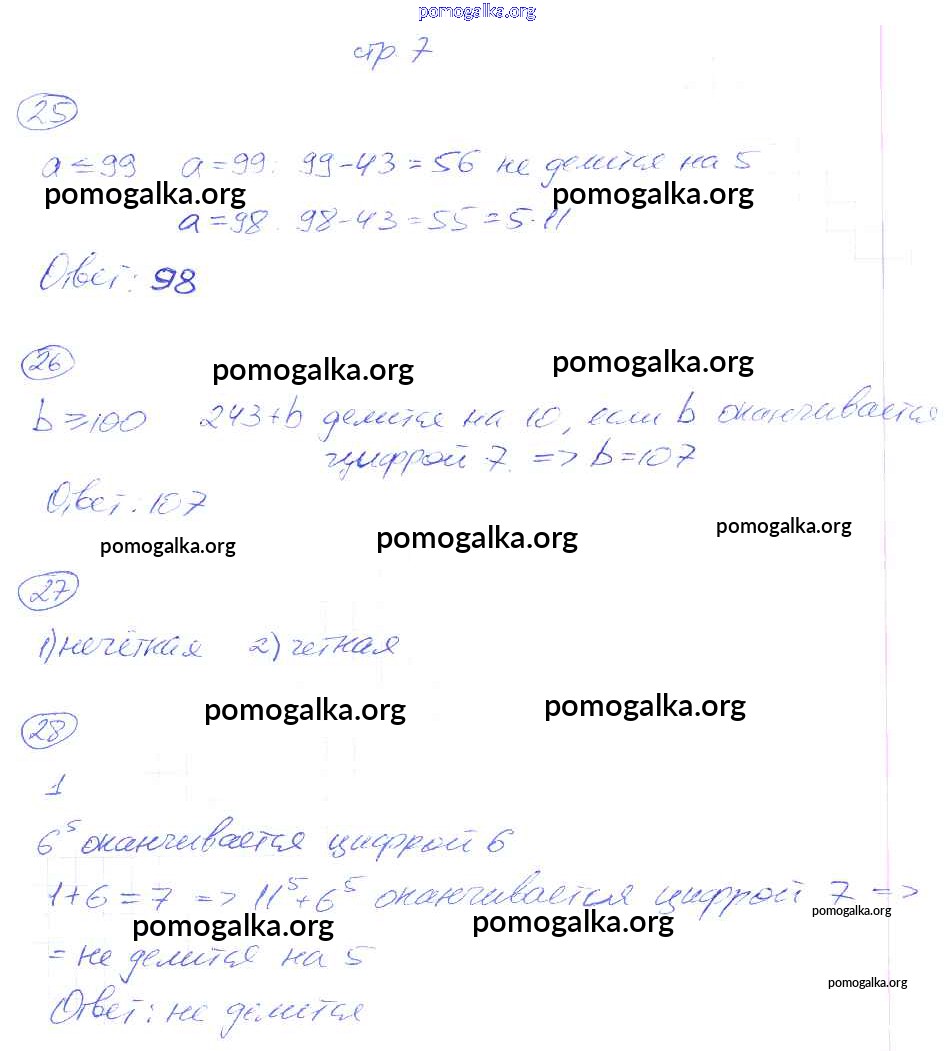 pomogalka.org
стр. 7
25
a ≤ 99 a = 99: 99 - 43 = 56 не делится на 5
pomogalka.org pomogalka.org
a = 98. 98 - 43 = 55 = 5·11
Ответ: 98
26
pomogalka.org pomogalka.org
b ≥ 100 243 + b делится на 10, если b оканчивается
цифрой 7. => b = 107
Ответ: 107
pomogalka.org pomogalka.org pomogalka.org
27
1) нечётная 2) четная
28
pomogalka.org pomogalka.org
1
6⁵ оканчивается цифрой 6
1 + 6 = 7 => 11⁵ + 6⁵ оканчивается цифрой 7 =>
pomogalka.org pomogalka.org pomogalka.org
= не делится на 5
pomogalka.org
Ответ: не делится